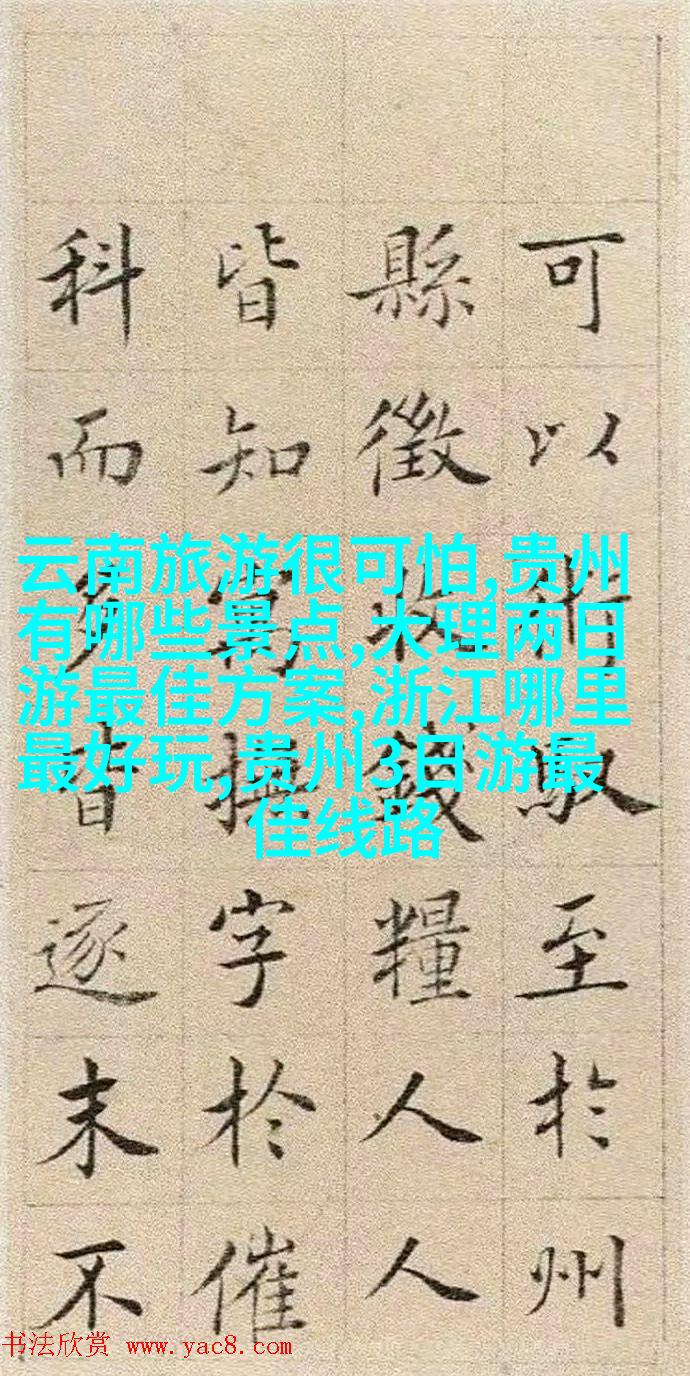 可以術馭至於州
縣徵收錢糧人人
皆知字於催
科而逐末不
云南旅游很可怕,贵州
有哪些景点,大理两日
游最佳方案,浙江哪里
最好玩,贵州3日游最
佳线路
书法欣赏 www.yac8.com